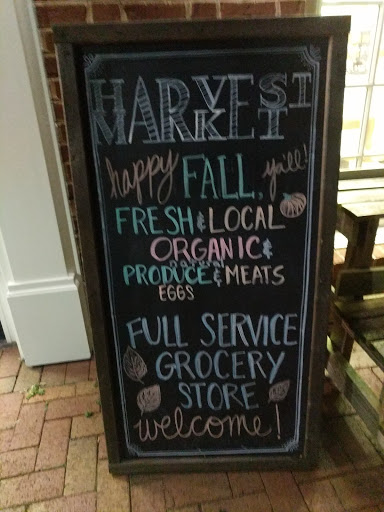 HARVEST
MARKET
happy FALL, y'all!
FRESH & LOCAL
ORGANIC &
natural
PRODUCE & MEATS
EGGS
FULL SERVICE
GROCERY
STORE
welcome!